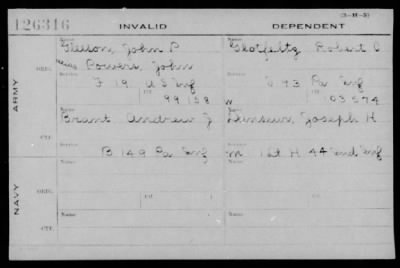 126316
INVALID
DEPENDENT
(3-H-5)
Name
Name
Gleeson, John P
Glotfeltz Robert C
alias Powers, John
ORIG.
Service
Service
F 19. U S Inf
93 Pa Inf
Ctf.
Ctf.
99158
103574
ARMY
Name
Name
Brant Andrew J
Joseph H
CTF.
Service
Service
B 149 Pa Inf
1st H 44 Ind Inf
Name
Name
ORIG.
Service
Service
Ctf.
Ctf.
NAVY
Name
Name
CTF.
Service
Service